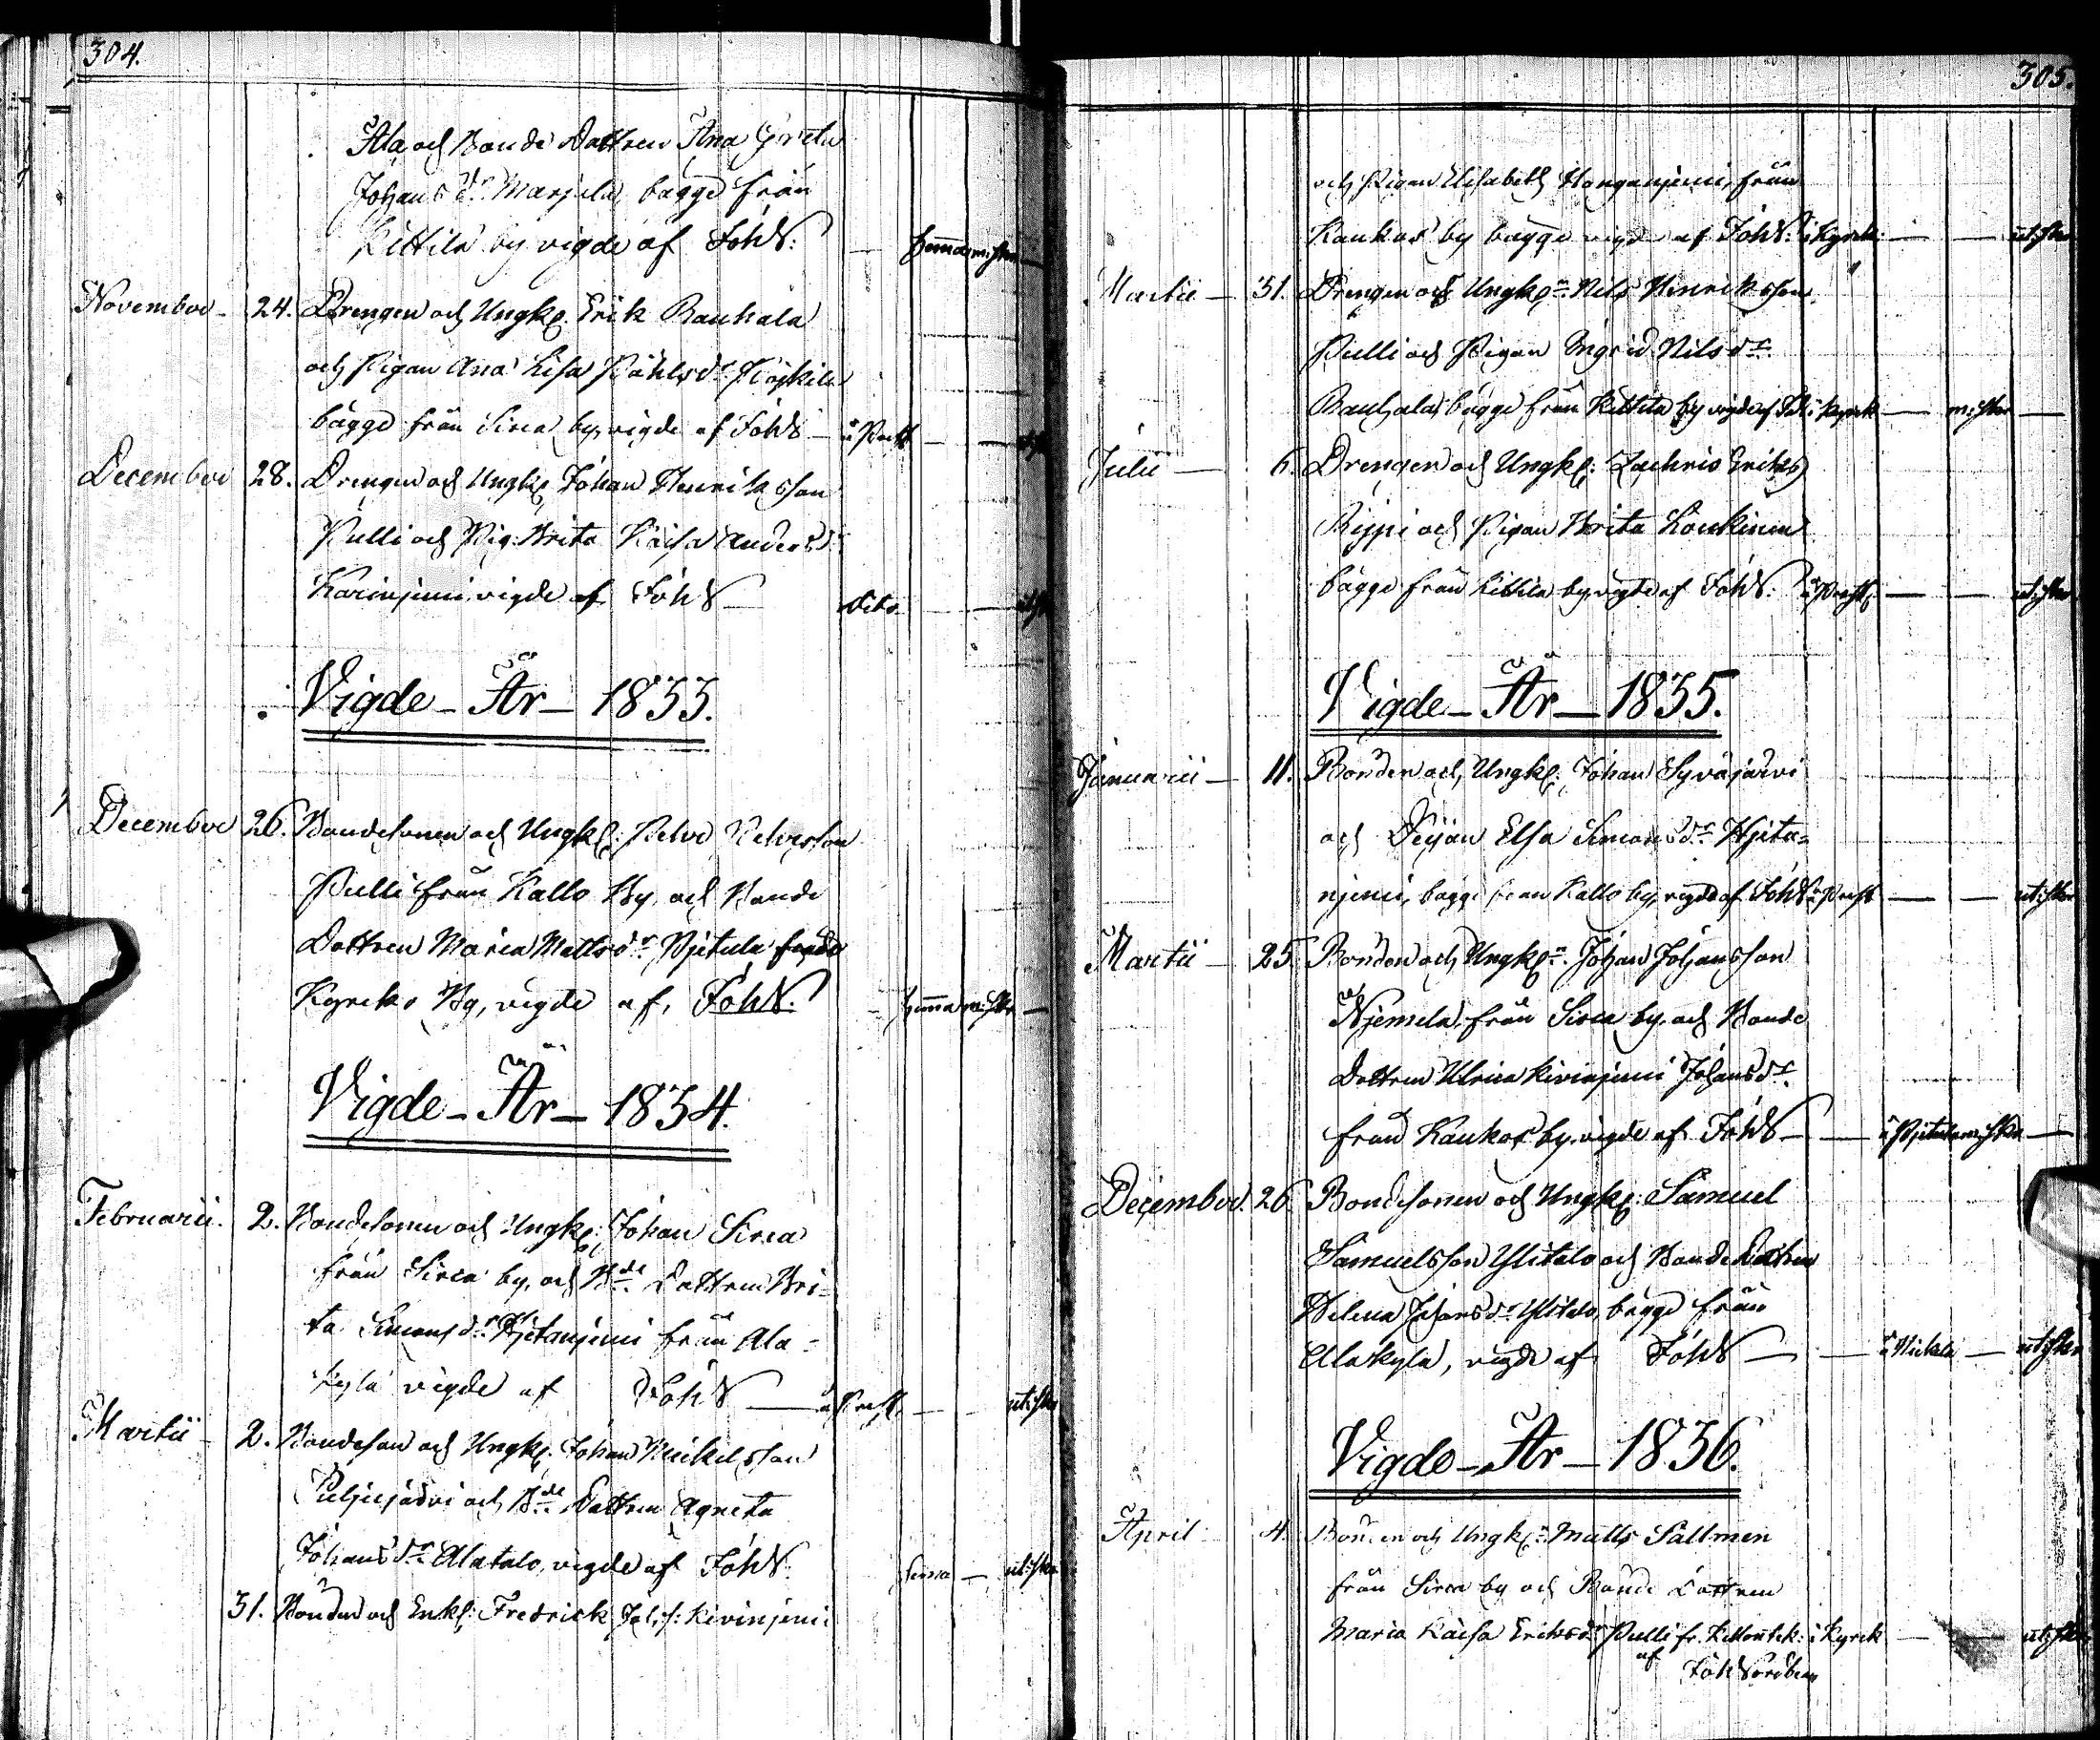 304.
Ala och Bonde Dottren Ana Greta
Johans dr. Marjela bägge från
Kittilä by vigde af Joh W: — hemma m:skr —
November — 24. Drengen och Ungk: Erik Rauhala
och Pigan Ana Lisa Påhls dr.
bägge från Sirca by, vigde af Joh W — å Prest — —
December 28. Drengen och Ungk: Johan Henriksson
Pulli och Pig: Brita Kaisa Anders d:
vigde af Joh W — dito — —
Vigde — År — 1833.
December 26. Bondesonen och Ungk: Petter Petersson
Pulli från Kallo By och Bonde
Dottren Maria Matts dr. Pjetula från
Kyrko By, vigde af, Joh W. — hemma m:skr —
Vigde — År — 1834.
Februarii. 2. Bondesonen och Ungk: Johan Sirca
från Sirca by, och Bde Dottren Bri-
ta Simons dr. Hjetanjemi från Ala-
kylä vigde af Joh W — å Prest. — ut:skr
Martii — 2. Bondeson och Ungk: Johan Mickelsson
Puljujärvi och Bde Dottren Agneta
Johans dr. Alatalo, vigde af Joh W. — ut:skr
31. Bonden och Enkl: Fredrick Joh:s: Kivinjemi
305.
och Pigan Elisabeth från
Kaukos by bägge vigde af Joh W: i Kyrk: — — ut:skr
Martii — 31. Drengen och Ungk: Nils Henriksson
Pulli och Pigan Ingrid Nils dr.
Rauhala, bägge från Kittilä by vigde af i Kyrk — m:skr —
Julii — 6. Drengen och Ungk: Zachris Eriks
och Pigan Brita Loukinen
bägge från Kittilä by, vigde af Joh W. å Prest — — ut:skr
Vigde — År — 1835.
Januarii — 11. Bonden och Ungk: Johan Syväjärvi
och Pigan Elsa Simons dr. Hjeta-
njemi, bägge från Kallo by, vigde af Joh W å Prest — — ut:skr
Martii — 25. Bonden och Ungk: Johan Johansson
Njemela, från Sirca by, och Bonde
Dottren Ulrica Kivinjemi Johans dr.
från Kaukos by, vigde af Joh W — — å Pjetula m:skr —
December. 26. Bondesonen och Ungk: Samuel
Samuelsson Ylitalo och Bonde Dottren
Helena Johans dr. Ylitalo, bägge från
Alakylä, vigde af Joh W — — å — ut:skr
Vigde — År — 1836.
April 4. Bonden och Ungk: Matts Sallinen
från Sirca by och Bonde Dottren
Maria Kaisa Eriks dr. Pulli fr. i Kyrk — — ut:skr
af Joh